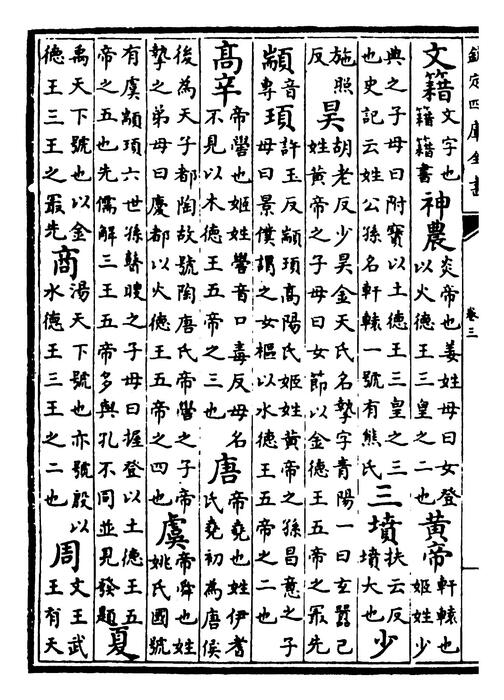 欽定四庫全書
卷三
文籍文字也籍籍書神農炎帝也姜姓母曰女登以火德王三皇之二也黄帝軒轅也姬姓少
典之子母曰附寳以土德王三皇之三也史記云姓公孫名軒轅一號有熊氏三墳扶云反墳大也少
施照反昊胡老反少昊金天氏名摯字青陽一曰玄囂己姓黄帝之子母曰女節以金德王五帝之最先
顓音專頊許玉反顓頊高陽氏姬姓黄帝之孫昌意之子母曰景僕謂之女樞以水德王五帝之二也
高辛帝嚳也姬姓嚳音口毒反母名不見以木德王五帝之三也唐帝堯也姓伊耆氏堯初為唐侯
後為天子都陶故號陶唐氏帝嚳之子帝摯之弟母曰慶都以火德王五帝之四也虞帝舜也姓姚氏國號
有虞顓頊六世孫瞽瞍之子母曰握登以土德王五帝之五也先儒解三王五帝多與孔不同並見發題夏
禹天下號也以金德王三王之最先商湯天下號也亦號殷以水德王三王之二也周文王武王有天